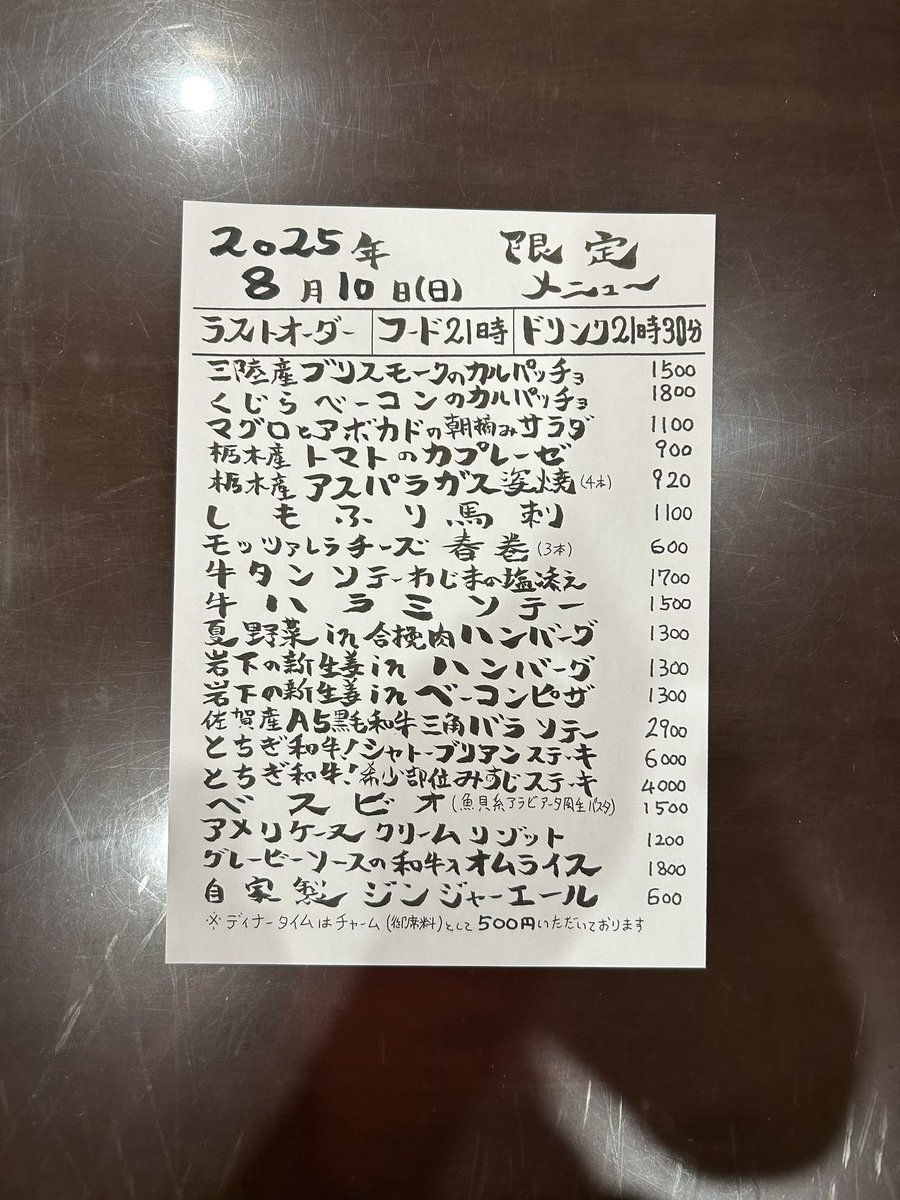 2025年 限定
8月10日(日) メニュー
ラストオーダー フード21時 ドリンク21時30分
三陸産ブリスモークのカルパッチョ 1500
くじらベーコンのカルパッチョ 1800
マグロとアボカドの朝摘みサラダ 1100
栃木産トマトのカプレーゼ 900
栃木産アスパラガス姿焼(4本) 920
しもふり馬刺 1100
モッツァレラチーズ春巻(3本) 600
牛タンソテーわじまの塩添え 1700
牛ハラミソテー 1500
夏野菜in合挽肉ハンバーグ 1300
岩下の新生姜inハンバーグ 1300
岩下の新生姜inベーコンピザ 1300
佐賀産A5黒毛和牛三角バラソテー 2900
とちぎ和牛!シャトーブリアンステーキ 6000
とちぎ和牛!希少部位みすじステーキ 4000
ベスビオ(魚貝系アラビアータ風生パスタ) 1500
アメリケーヌクリームリゾット 1200
グレービーソースの和牛入オムライス 1800
自家製ジンジャーエール 600
※ディナータイムはチャーム(御席料)として500円いただいております